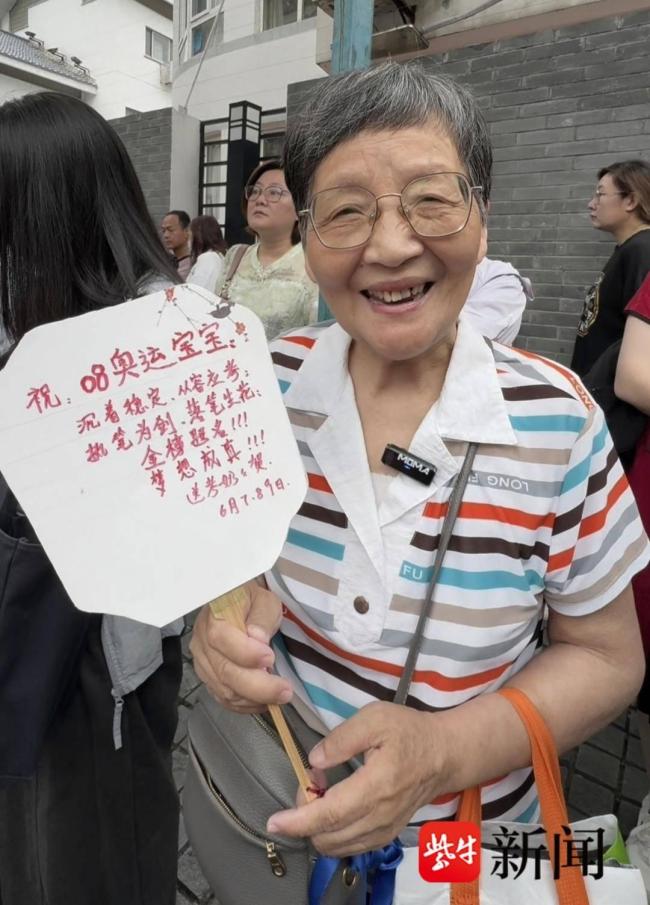 祝：08奥运宝宝：
沉着稳定、从容应考；
执笔为剑、夢笔生花；
金榜题名!!!
夢想成真!!!
送考奶々贺.
6月7.8.9日.
MOMA
LONG FU
FU
紫牛 新闻